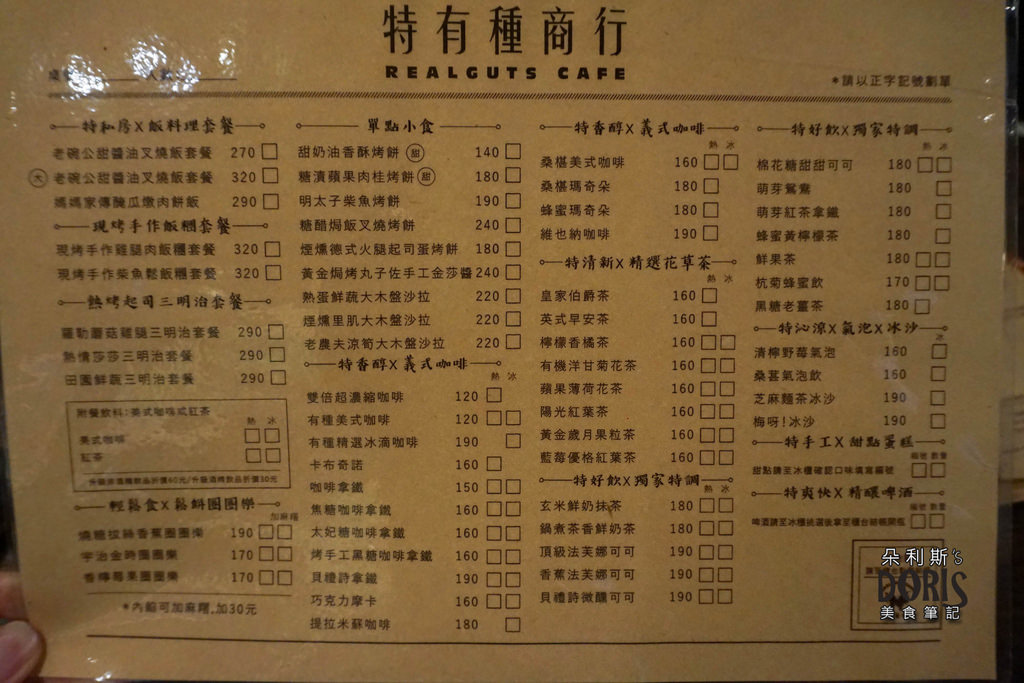 特有種商行
REALGUTS CAFE
*請以正字記號劃單
特私房X飯料理套餐
老碗公甜醬油叉燒飯套餐 270
大 老碗公甜醬油叉燒飯套餐 320
媽媽家傳醃瓜燉肉飯 290
現烤手作飯糰套餐
現烤手作雞腿肉飯糰套餐 320
現烤手作柴魚鬆飯糰套餐 320
熱烤起司三明治套餐
羅勒蘑菇雞腿三明治套餐 290
熱情莎莎三明治套餐 290
田園鮮蔬三明治套餐 290
附餐飲料:美式咖啡或紅茶
熱 冰
美式咖啡
紅茶
升級非酒精飲品折價60元/升級酒精飲品折價30元
輕鬆食X鬆餅圈圈樂
加麻糬
燒糖拉絲香蕉圈圈樂 190
宇治金時圈圈樂 170
香檸莓果圈圈樂 170
*內餡可加麻糬,加30元
單點小食
甜奶油香酥烤餅 甜 140
糖漬蘋果肉桂烤餅 甜 180
明太子柴魚烤餅 190
糖醋焗飯叉燒烤餅 240
煙燻德式火腿起司蛋烤餅 180
黃金焗烤丸子佐手工金莎醬 240
熟蛋鮮蔬大木盤沙拉 220
煙燻里肌大木盤沙拉 220
老農夫涼筍大木盤沙拉 220
特香醇X義式咖啡
熱 冰
雙倍超濃縮咖啡 120
有種美式咖啡 120
有種精選冰滴咖啡 190
卡布奇諾 160
咖啡拿鐵 150
焦糖咖啡拿鐵 160
太妃糖咖啡拿鐵 160
烤手工黑糖咖啡拿鐵 160
貝禮詩拿鐵 190
巧克力摩卡 160
提拉米蘇咖啡 180
特香醇X義式咖啡
熱 冰
桑椹美式咖啡 160
桑椹瑪奇朵 180
蜂蜜瑪奇朵 180
維也納咖啡 190
特清新X精選花草茶
熱 冰
皇家伯爵茶 160
英式早安茶 160
檸檬香橘茶 160
有機洋甘菊花茶 160
蘋果薄荷花茶 160
陽光紅葉茶 160
黃金歲月果粒茶 160
藍莓優格紅葉茶 160
特好飲X獨家特調
熱 冰
玄米鮮奶抹茶 180
鍋煮茶香鮮奶茶 180
頂級法芙娜可可 190
香蕉法芙娜可可 190
貝禮詩微醺可可 190
特好飲X獨家特調
熱 冰
棉花糖甜甜可可 180
萌芽鴛鴦 180
萌芽紅茶拿鐵 180
蜂蜜黃檸檬茶 180
鮮果茶 180
杭菊蜂蜜飲 170
黑糖老薑茶 180
特沁涼X氣泡X冰沙
冰
清檸野莓氣泡 160
桑葚氣泡飲 160
芝麻麵茶冰沙 190
梅呀!冰沙 190
特手工X甜點蛋糕
編號 數量
甜點請至冰櫃確認口味填寫編號
特爽快X精釀啤酒
編號 數量
啤酒請至冰櫃挑選後拿至櫃台結帳開瓶
朵利斯's
DORIS
美食筆記